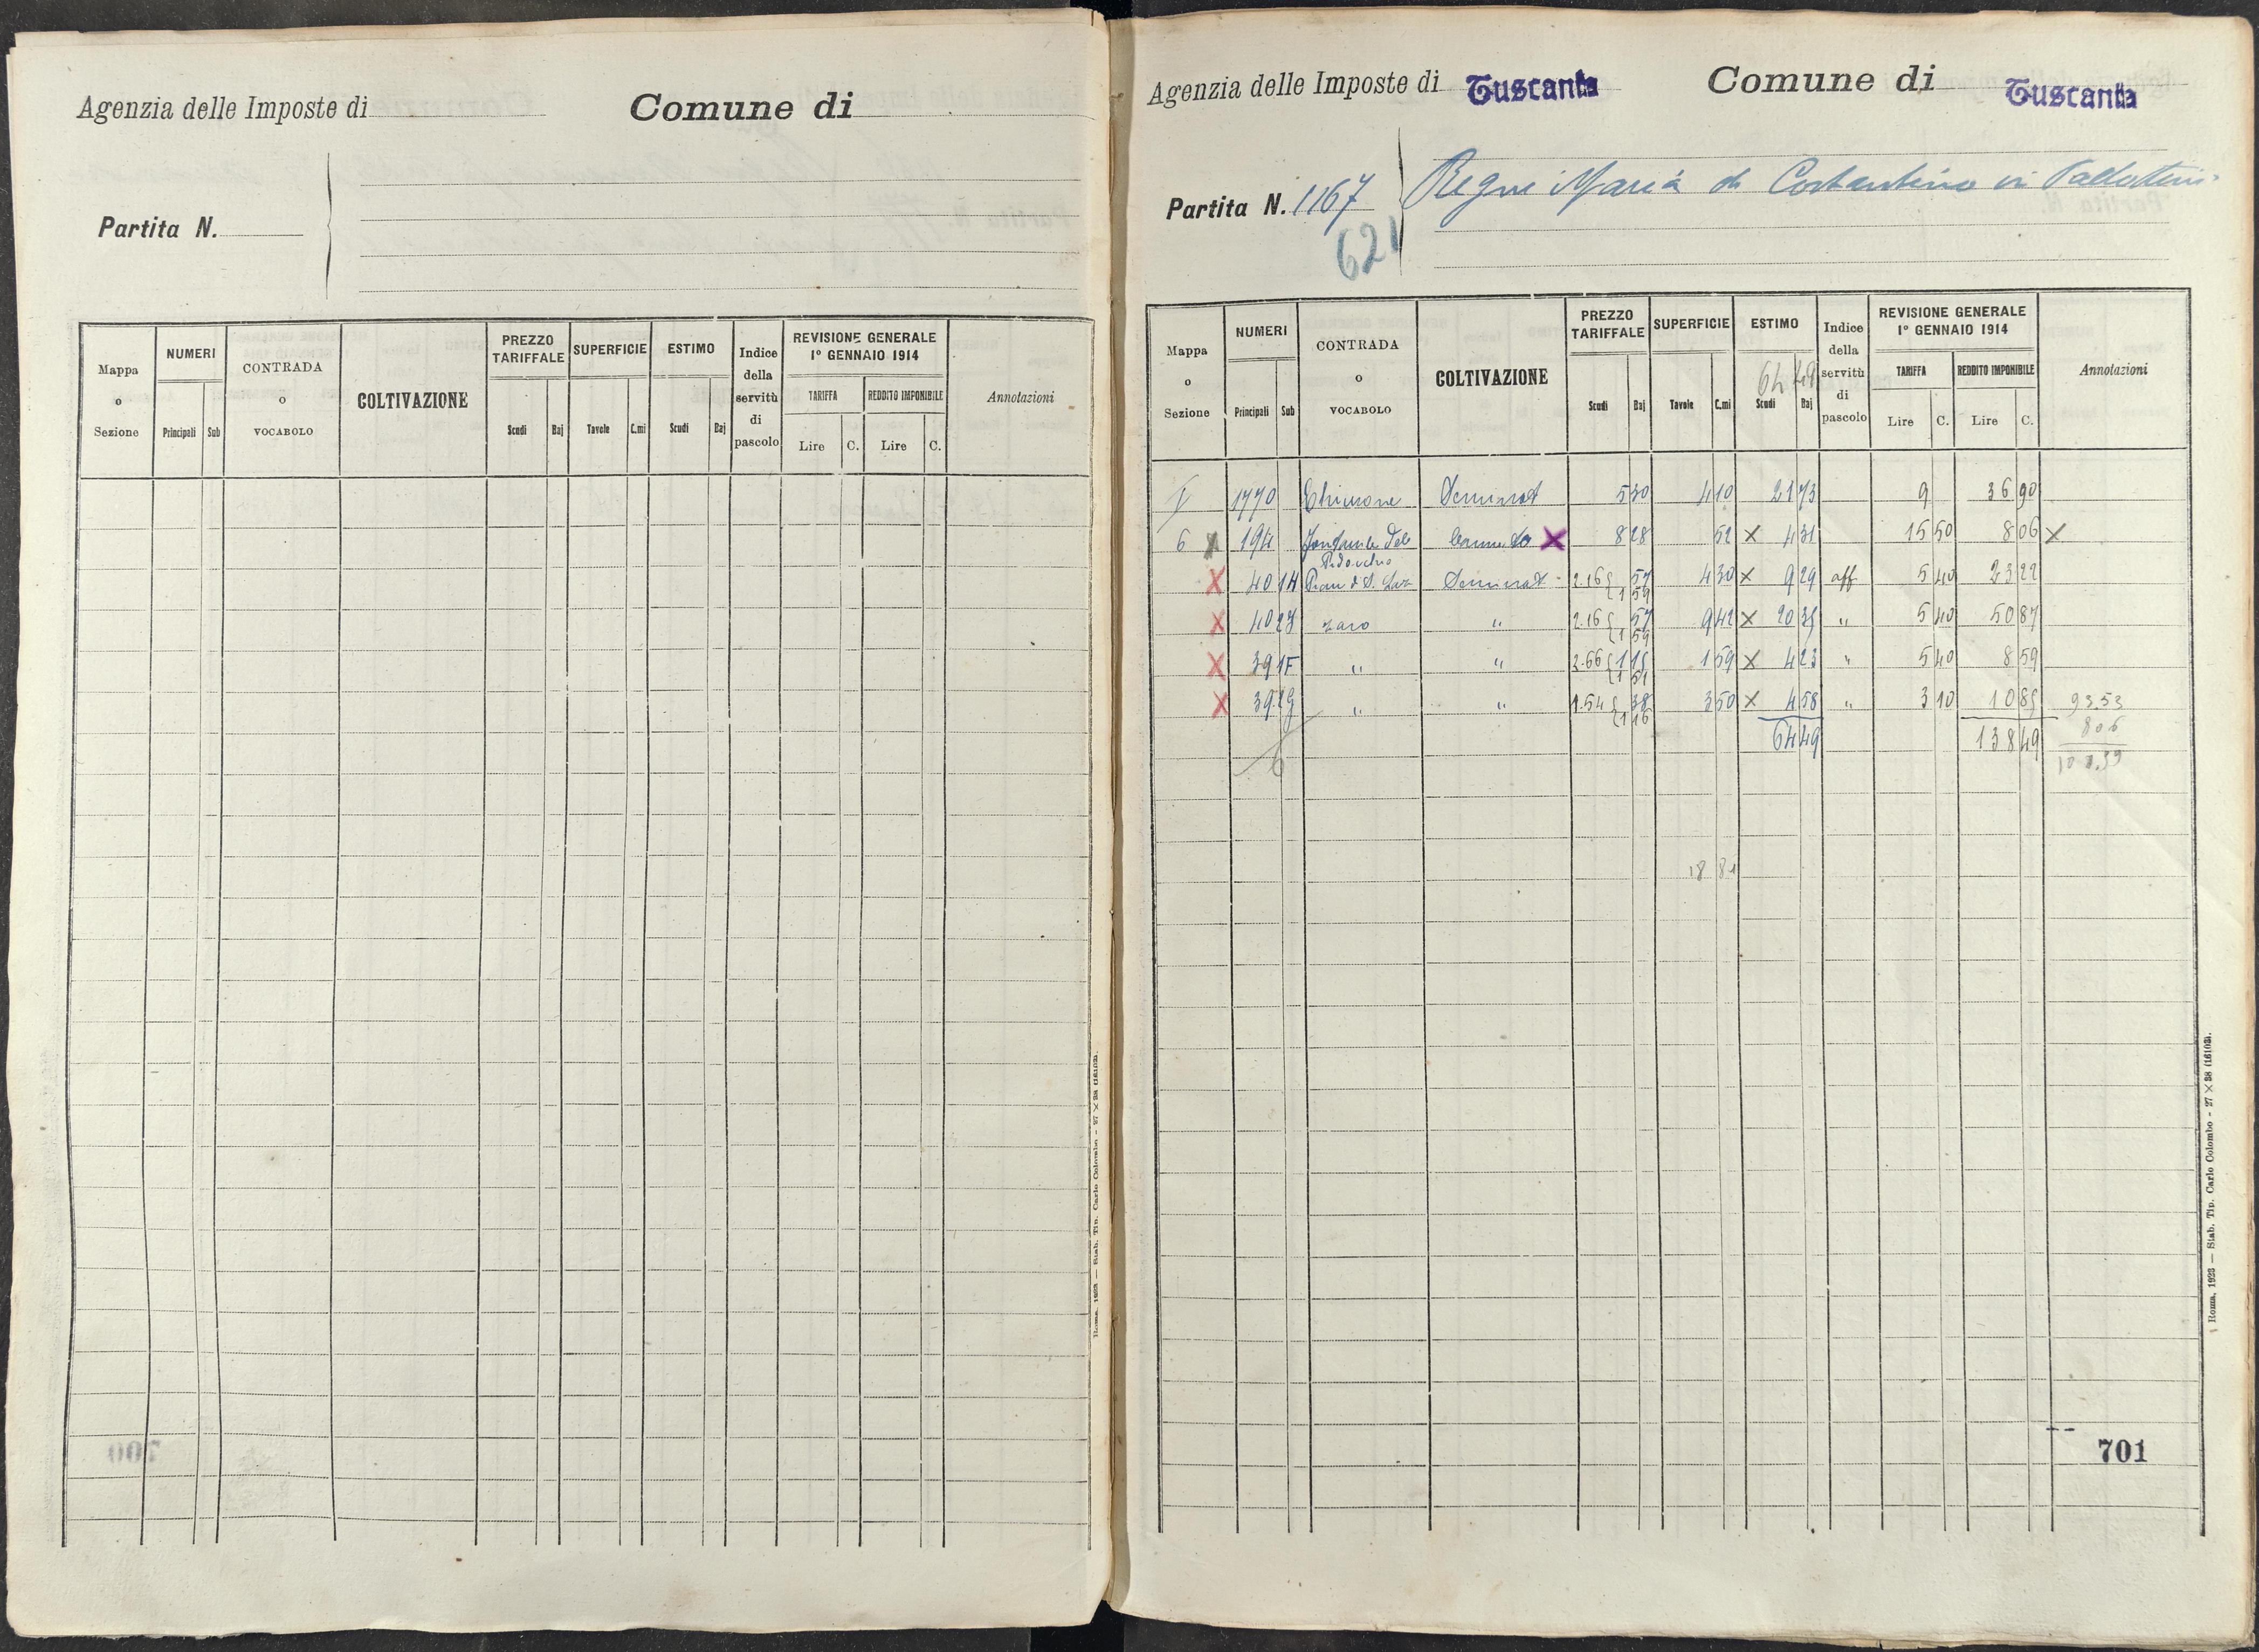 Agenzia delle Imposte di
Comune di
Partita N.
Mappa o Sezione
NUMERI
Principali Sub
CONTRADA o VOCABOLO
COLTIVAZIONE
PREZZO TARIFFALE
Scudi Baj
SUPERFICIE
Tavole C.mi
ESTIMO
Scudi Baj
Indice della servitù di pascolo
REVISIONE GENERALE 1° GENNAIO 1914
TARIFFA
Lire C.
REDDITO IMPONIBILE
Lire C.
Annotazioni
Roma, 1923 — Stab. Tip. Carlo Colombo - 27 × 38 (16103).
700
Agenzia delle Imposte di Tuscania
Comune di Tuscania
Partita N. 1167
Regni Maria di Costantino in Pallottini
621
Mappa o Sezione
NUMERI
Principali Sub
CONTRADA o VOCABOLO
COLTIVAZIONE
PREZZO TARIFFALE
Scudi Baj
SUPERFICIE
Tavole C.mi
ESTIMO
64 49
Scudi Baj
Indice della servitù di pascolo
REVISIONE GENERALE 1° GENNAIO 1914
TARIFFA
Lire C.
REDDITO IMPONIBILE
Lire C.
Annotazioni
1770 Seminat 5 30 4 10 21 73 9 36 90
6 X 194 X 8 28 52 X 4 31 15 50 8 06 X
X 401 H Seminat 2.16 { 57 1 59 4 30 X 9 29 aff 5 40 23 22
X 402 zaro " 2.16 { 57 1 59 9 42 X 20 35 " 5 40 50 87
X 391 F " " 2.66 { 1 15 1 51 1 59 X 4 23 " 5 40 8 59
X 392 g " " 1.54 { 38 1 16 3 50 X 4 58 " 3 10 10 85 93.53
64 49 138 49 8 06
6 101.59
18 84
701
Roma, 1923 — Stab. Tip. Carlo Colombo - 27 × 38 (16103).